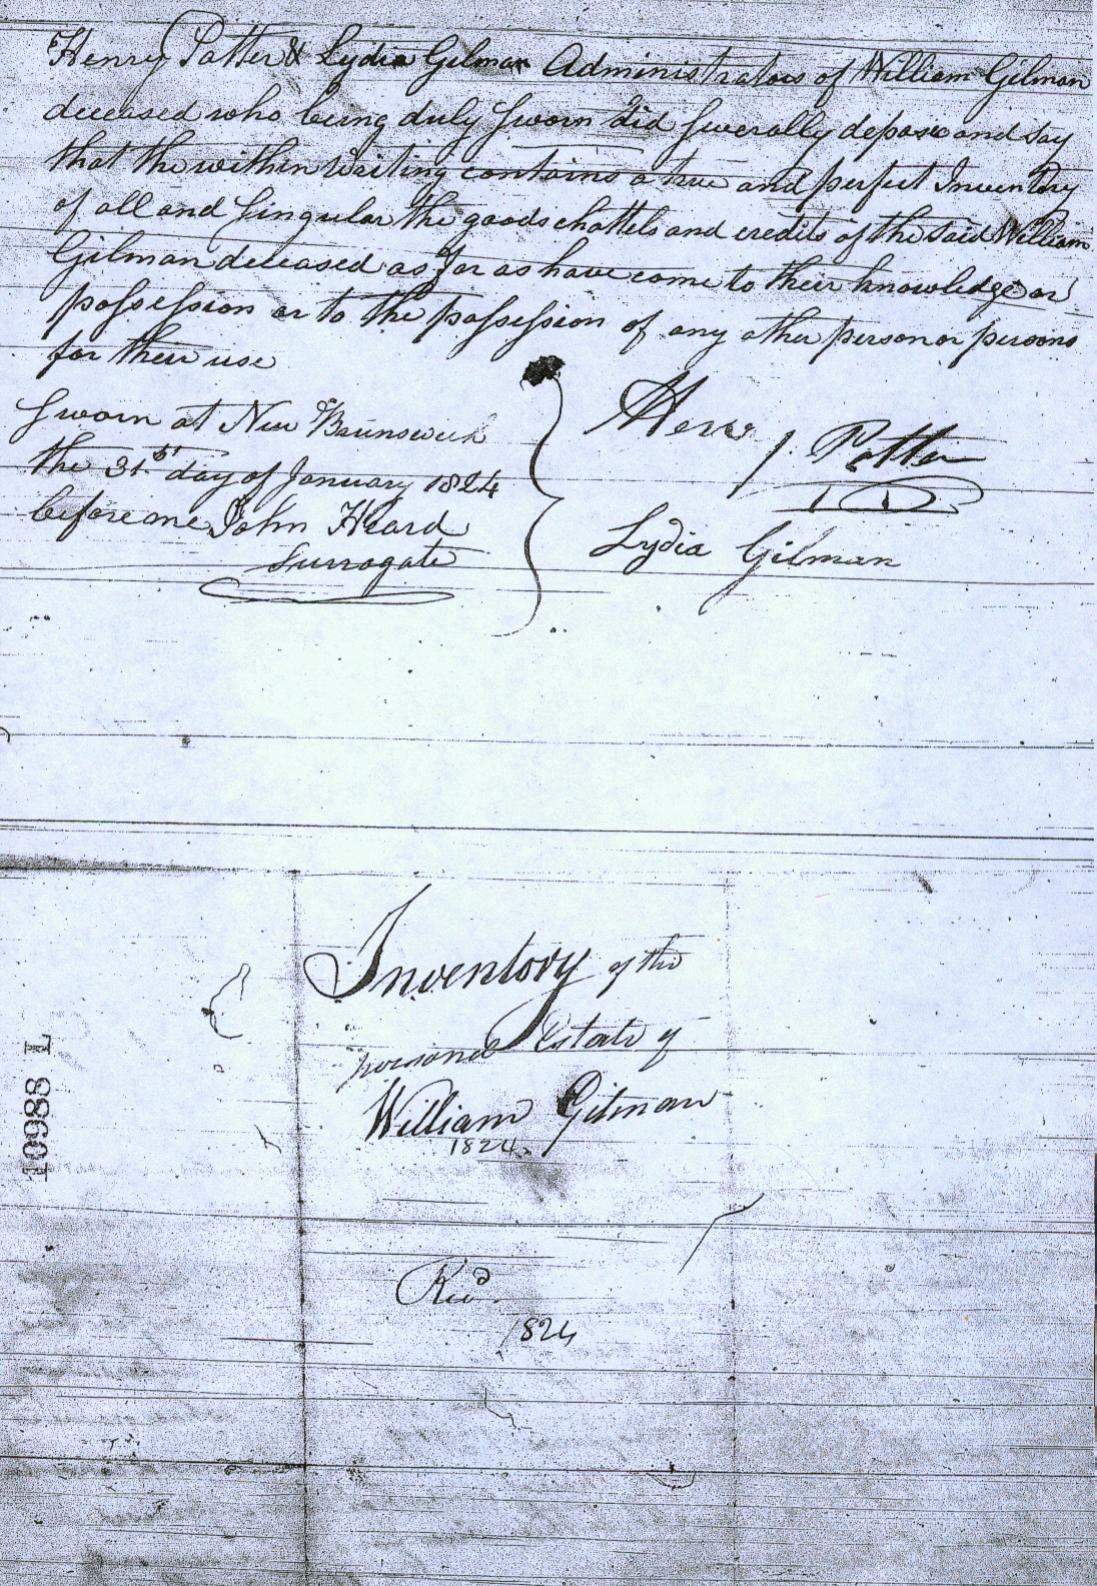 Henry Potter & Lydia Gilman Administrators of William Gilman
deceased who being duly Sworn did Severally depose and Say
that the within Writing contains a true and perfect Inventory
of all and Singular the goods chattels and credits of the said William
Gilman deceased as far as have come to their knowledge or
possession or to the possession of any other person or persons
for their use
Sworn at New Brunswick
the 31st day of January 1824
before me John Heard
Surrogate
Henry Potter
Lydia Gilman
Inventory of the
personal Estate of
William Gilman
1824
Recd
1824
10988 L